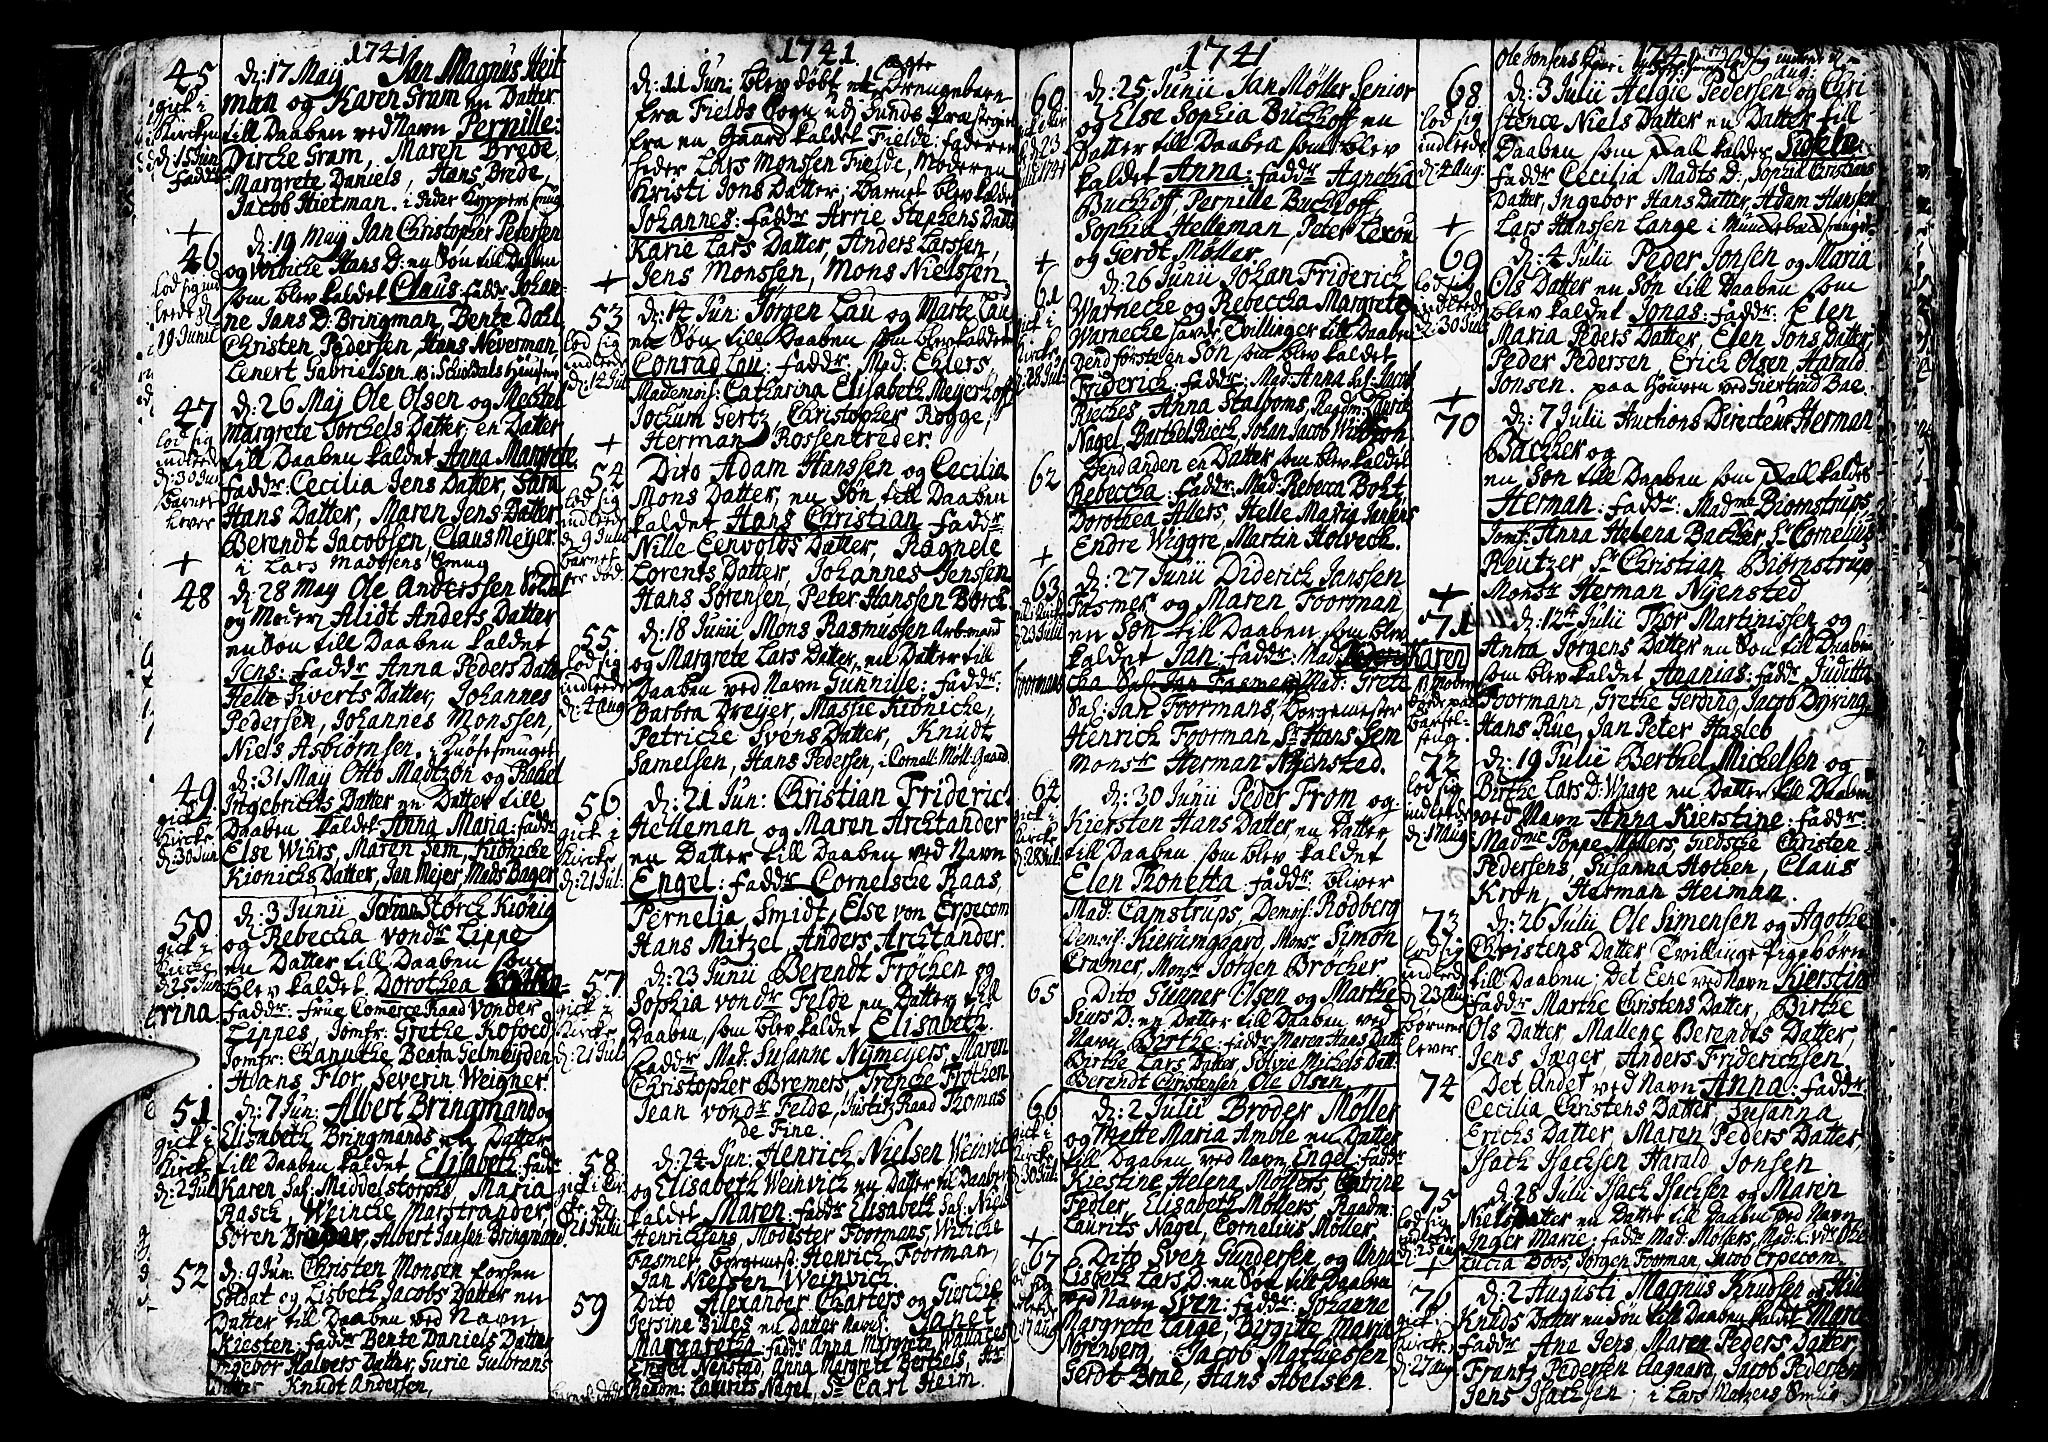 1741
45
gick i
Kircken
d: 15 Jun
d: 17 May Jan Magnus Heit
man og Karen Gram en Datter
till Daaben ved Navn Pernille:
Dircke Gram, Maren Brede,
Margrete Daniels, Hans Brede
Jacob Hietman. i Peder Kyppers smug
+
46
lod sig ind
leede d:
19 Junii
d: 19 May Jan Christopher Pedersen
og Wibicke Hans D: en Søn till Daaben
som blev kaldet Claus fadd: Johan-
ne Jans D: Bringman, Bente Dahl
Christen Pedersen, Hans Neverman,
Lenert Gabrielsen
47
lod sig
indleede
d: 30 Jun
Barnet
lever
d: 26 Maj Ole Olsen og Mechtel
Margrete Torchels Datter, en Datter
till Daaben kaldet Anna Margrete
faddr: Cecilia Jens Datter, Sara
Hans Datter, Maren Jens Datter
Berendt Jacobsen, Claus Meyer.
i Lars Madtsens Smug
+
48
d: 28 May Ole Anderssen Soldat
og Moder Alidt Anders Datter
en Søn till Daaben kaldet
Jens: faddr: Anna Peders Datter
Helle Siverts Datter, Johannes
Pedersen, Johannes Monssen,
Niels Asbiørnsen, i Knøsesmuget
49
gick i
Kircke
d: 30 Jun
d: 31 May Otto Madtzon og Rahel
Ingebrichts Datter en Datter till
Daaben kaldet Anna Maria: faddr
Else Wihrs, Maren Sem, Kionicke
Kionichs Datter, Jan Mejer, Mads Bager
50
gick i
Kircke
d: 25 Jun
d: 3 Junii Johan Storck Kiønig
og Rebeccha vondr Lippe
en Datter till Daaben som
blev kaldet Dorothea
erina
faddr: Frue Comerce Raad Vonder
Lippes Jomfr: Grethe Kofoed
Jomfr: Beata Gelmeyden
Hans Flor, Severin Weigner
51
gick i
Kircke
d: 2 Jul
d: 7 Jun: Albert Bringmand og
Elisabeth Bringmands en Datter
till Daaben kaldet Elisabeth faddr
Karen Sal: Middelstorphs, Maria
Rasch, Weincke Marstrander,
Søren, Albert Jansen Bringmand.
52
d: 9 Jun: Christen Monsen forhen
Soldat og Lisbeth Jacobs Datter en
Datter till Daaben ved Navn
Kiesten: faddr Bente Daniels Datter
Ingebor Halvors Datter, Gurie Gulbrans
Datter Knudt Andersen,
1741.
d: 11 Jun: blev døbt et ægte Drengebarn
fra Fields Sogn udj Sunds Præstegield
fra en Gaard kaldet Fielde: faderen
heder Lars Monssen Fielde, Moderen
Kristi Jons Datter; Barnet blev kaldet
Johannes: faddr Arrie Stephens Datter
Karie Lars Datter, Anders Larssen,
Jens Monssen, Mons Nielssen
+
53
lod sig
indleede
d: 12 Jul
d: 14 Jun: Jørgen Lau og Marte Lau
en Søn till Daaben som blev kaldet
Conrad Lau: faddr: Mad: Ehlers,
Mademois: Catharina Elisabeth Meyerhoff
Jochum Gertz, Christopher Rogge,
Herman Rossentrider.
+
54
lod sig
indleede
d: 9 Julii
barnet
er død
Dito Adam Hanssen og Cecilia
Mons Datter, en Søn till Daaben
kaldet Hans Christian faddr
Nille Eenvolds Datter, Ragnele
Lorents Datter, Johannes Jenssen
Hans Sørensen, Peter Hanssen Borch
55
lod sig
indleede
d: 4 Aug
d: 18 Junii Mons Rasmussen Arbmand
og Margrete Lars Datter, en Datter till
Daaben ved Navn Gunnille: faddr:
Barbra Dreyer, Massie Kionicke,
Petricke Ivens Datter, Knudt
Samelsen, Hans Pedersen, i Cornel: Møll: Gaard
56
gick i
Kircke
d: 21 Jul:
d: 21 Jun: Christian Friderich
Helleman og Maren Archtander
en Datter till Daaben ved Navn
Engel: faddr: Cornelsche Raas,
Pernelia, Smidt, Else von Erpecom
Hans Mitzel Anders Archtander.
57
gick i
Kircke
d: 21 Jul:
d: 23 Junii Berendt Frochen og
Sophia vondr Felde en Datter till
Daaben, som blev kaldet Elisabeth.
Faddr Mad: Susanne Nijmeyers, Maren
Christopher Bremers, Trencke Frothen
Jean vondr Felde, Justitz Raad Thomas
de Fine.
58
gick i Kir
21 Julii
d: 24 Jun: Henrich Nielsen Weinvich
og Elisabeth Weinvich en Datter til Daaben
kaldet Maren: faddr Elisabeth Sal: Niels
Henrichsens, Modester Foormans, Wencke
Fasmer, borgemest: Henrich Foorman,
Jan Nielsen Weinvich.
59
Dito Alexander Charters og Gierche
Jersine Billes en Datter Navn: Janet
Margaretha: faddr Anna Margrete Wallaces
Engel Nenstad, Anna Margrete Bertels, Hr
Raadm: Laurits Nagel, Sr Carl Heim.
1741
60
gick i Kir
d: 23
Julii 1741
d: 25 Junii Jan Møller Senior
og Else Sophia Buchhoff en
Datter till Daaben som blev
kaldet Anna: faddr Agnetha
Buchhoff, Pernille Buchhoff
Sophia Helleman, Peter Lexou
og Gerdt Møller.
+
61
gick i
Kircke
d: 28 Jul:
d: 26 Junii Johan Friderich
Warnecke og Rebeccha Margrete
Warnecke havde Tvillinger till Daaben
Dend første en Søn som blev kaldet
Friderich: faddr: Mad: Anna Sal: Jacob
Rieckes Anna Stalboms, Raadm: Laurits
Nagel, Barthel Rieck, Johan Jacob
62
Dend anden en Datter som blev kaldet
Rebeccha: faddr: Mad: Rebecca Bolt,
Dorothea Allers, Helle Maria Jansens
Endre Wiggre, Martin Holveck.
+
63
d: 23 Julii
d: 27 Junii Diderich Janssen
Fasmer og Maren Foorman
en Søn till Daaben som blev
kaldet Jan: faddr: Mad:
Mad: Grete
Sal: Jan Foormans, borgemester
Foormans
Henrich Foorman, Sr Hans Sem
Monsr Herman Nijenstad.
64
gick i
Kircke
d: 28 Jul:
d: 30 Junii Peder From og
Kiersten Hans Datter, en Datter
till Daaben som blev kaldet
Elen Thonetta: faddr: bliver
Mad: Camstrups, Demois: Rodberg
Demois: Kierumgaard, Monsr Simon
Cramer, Monsr Jørgen Brøcher
65
Dito Gunner Olsen og Marthe
Siurs D: en Datter till Daaben ved
Navn Birthe: faddr Maren Hans Datt
Birthe Lars Datter, Solvie Michels Datt:
Berendt Christensen Ole Olsen
66
gick i
Kircke
d: 30 Jul:
d: 2 Julii Broder Møller
og Mette Maria Amble en Datter
till Daaben ved Navn Engel: faddr
Kiestine Helena Møllers Catrine
Fedler, Elisabeth Møllers, Raadm:
Laurits Nagel, Cornelius Møller
+
67
Dito Sven Gundersen og Anna
Lisbeth Lars D: en Søn till Daaben
ved Navn Sven: faddr: Johanne
Margrete Lange, Birgitte Maria
Norenberg, Jacob Mathiessen
Gerdt Brae, Hans Abelsen.
68
lod sig
indleede
d: 4 Aug:
d: 3 Julii Helgie Pedersen og Chri
stence Niels Datter en Datter till
Daaben som skall kaldes Sidsele:
faddr Cecilia Madts D:, Sophia Christians
Datter, Ingebor Hans Datter, Adam Hansen
Lars Hanssen Lange i
+
69
lod sig
indleede
d: 30 Jul:
d: 4 Julii Peder Jonsen og Maria
Ols Datter en Søn till Daaben som
blev kaldet Jonas: faddr: Elen
Maria Peders Datter, Elen Jons Datter,
Peder Pedersen Erich Olsen, Harald
Jonsen. paa Houven ved Giertrud Bae.
+
70
d: 7 Julii Auchons Directeur Herman
Bacher og
en Søn till Daaben som skall kaldes
Herman: faddr: Madme Biornstrups,
Jomf: Anna Helena Bacher Sr Cornelius
Reutzer Sr Christian Biørnstrup
Monsr Herman Nijenstad
+
71
Karen
NB Moderen
døde paa
barsel-
seng.
d: 12te Julii Thor Martinissen og
Anna Jørgens Datter en Søn till Daaben
som blev kaldet Ananias: faddr Juditta
Foormann, Grethe Gerding, Jacob Dyring,
Hans Rue, Jan Peter Hasleb
72
lod sig
indleede
d: 17 Aug
d: 19 Julii Berthel Michelsen og
Birthe Lars D: Whage en Datter till Daaben
ved Navn Anna Kierstine: faddr:
Madme Poppe Møllers, Giedsche Christen-
Pedersens, Susanna Hothen, Claus
Krøn, Herman Heiman.
73
lod sig
indleede
d: 23 Aug
børnene
lever.
d: 26 Julii Ole Simensen og Agothe
Christens Datter Tvillinge Pigebørn
till Daaben; Det Eene ved Navn Kierstin
faddr Marthe Christens Datter, Birthe
Ols Datter, Mallene Berendts Datter,
Jens Jæger, Anders Friderichsen.
74
Det Andet ved Navn Anna: faddr
Cecilia Christens Datter, Susanna
Erichs Datter, Maren Peders Datter,
Isach Isachsen Harald Jonsen
75
lod sig
indleede
d: 23 Aug
d: 28 Julii Isach Isachsen og Maren
Niels Datter en Datter till Daaben ved Navn
Inger Marie: faddr Mad: Møllers, Mad:
Lucia Doos, Jørgen Foorman, Jacob Erpecom.
+
76
gick i
Kircke
d: 27 Aug:
d: 2 Augusti Magnus Knudsen og
Knuds Datter en Søn till Daaben kaldet
faddr: Ana Jens, Maren Peders Datter,
Frantz Pedersen Aagaard, Jacob Pedersen
Jens Isachsen; i Lars Matzens Smug